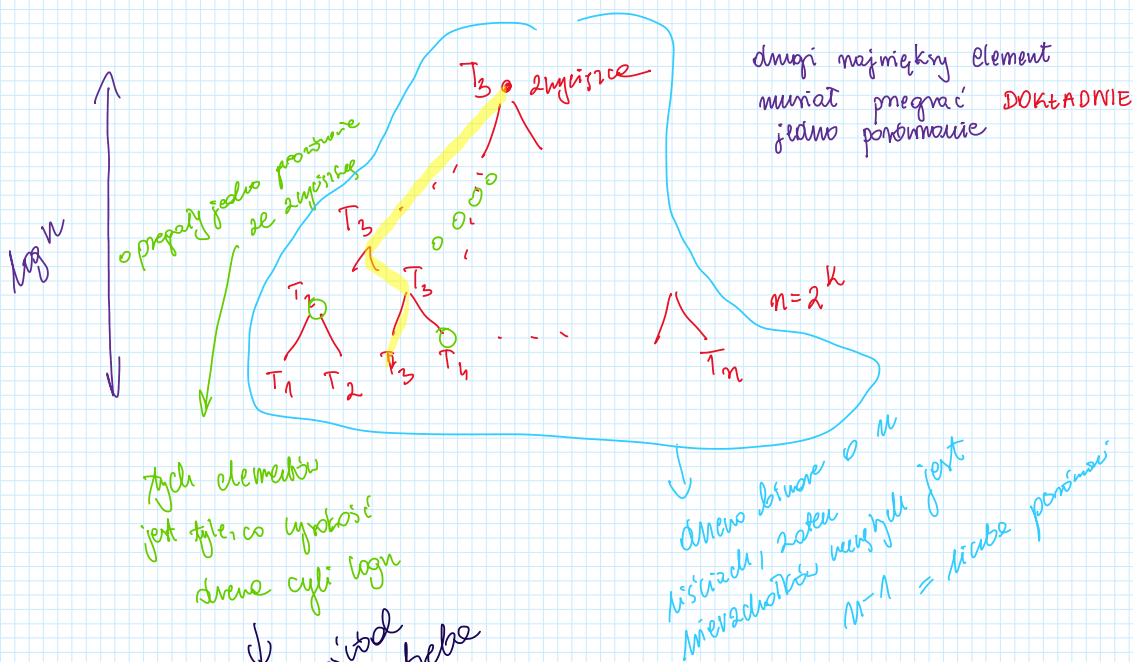 drugi największy element
musiał przegrać DOKŁADNIE
jedno porównanie
T3 zwycięzca
o przegrały jedno porównanie
ze zwycięzcą
log n
T3
T2 T3
T1 T2 T3 T4 . . . Tn
n=2^k
tych elementów
jest tyle, co wysokość
drzewa czyli log n
drzewo binarne o n
liściach, zatem
wierzchołków wewn. jest
n-1 = liczba porównań